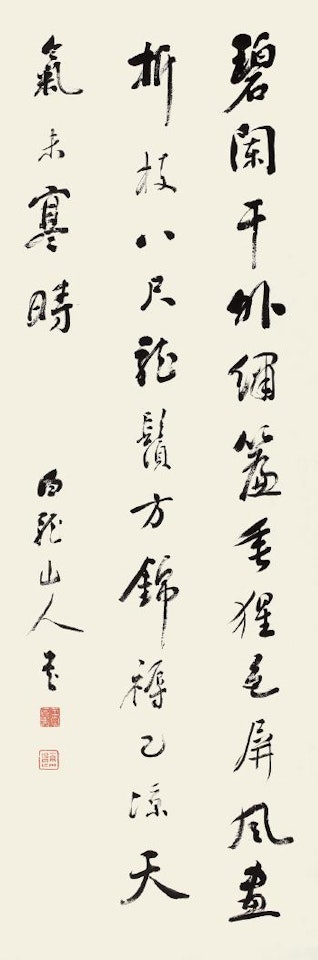 碧闌干外繡簾垂猩色屏風畫
折枝八尺龍鬚方錦褥已涼天
氣未寒時
白龍山人